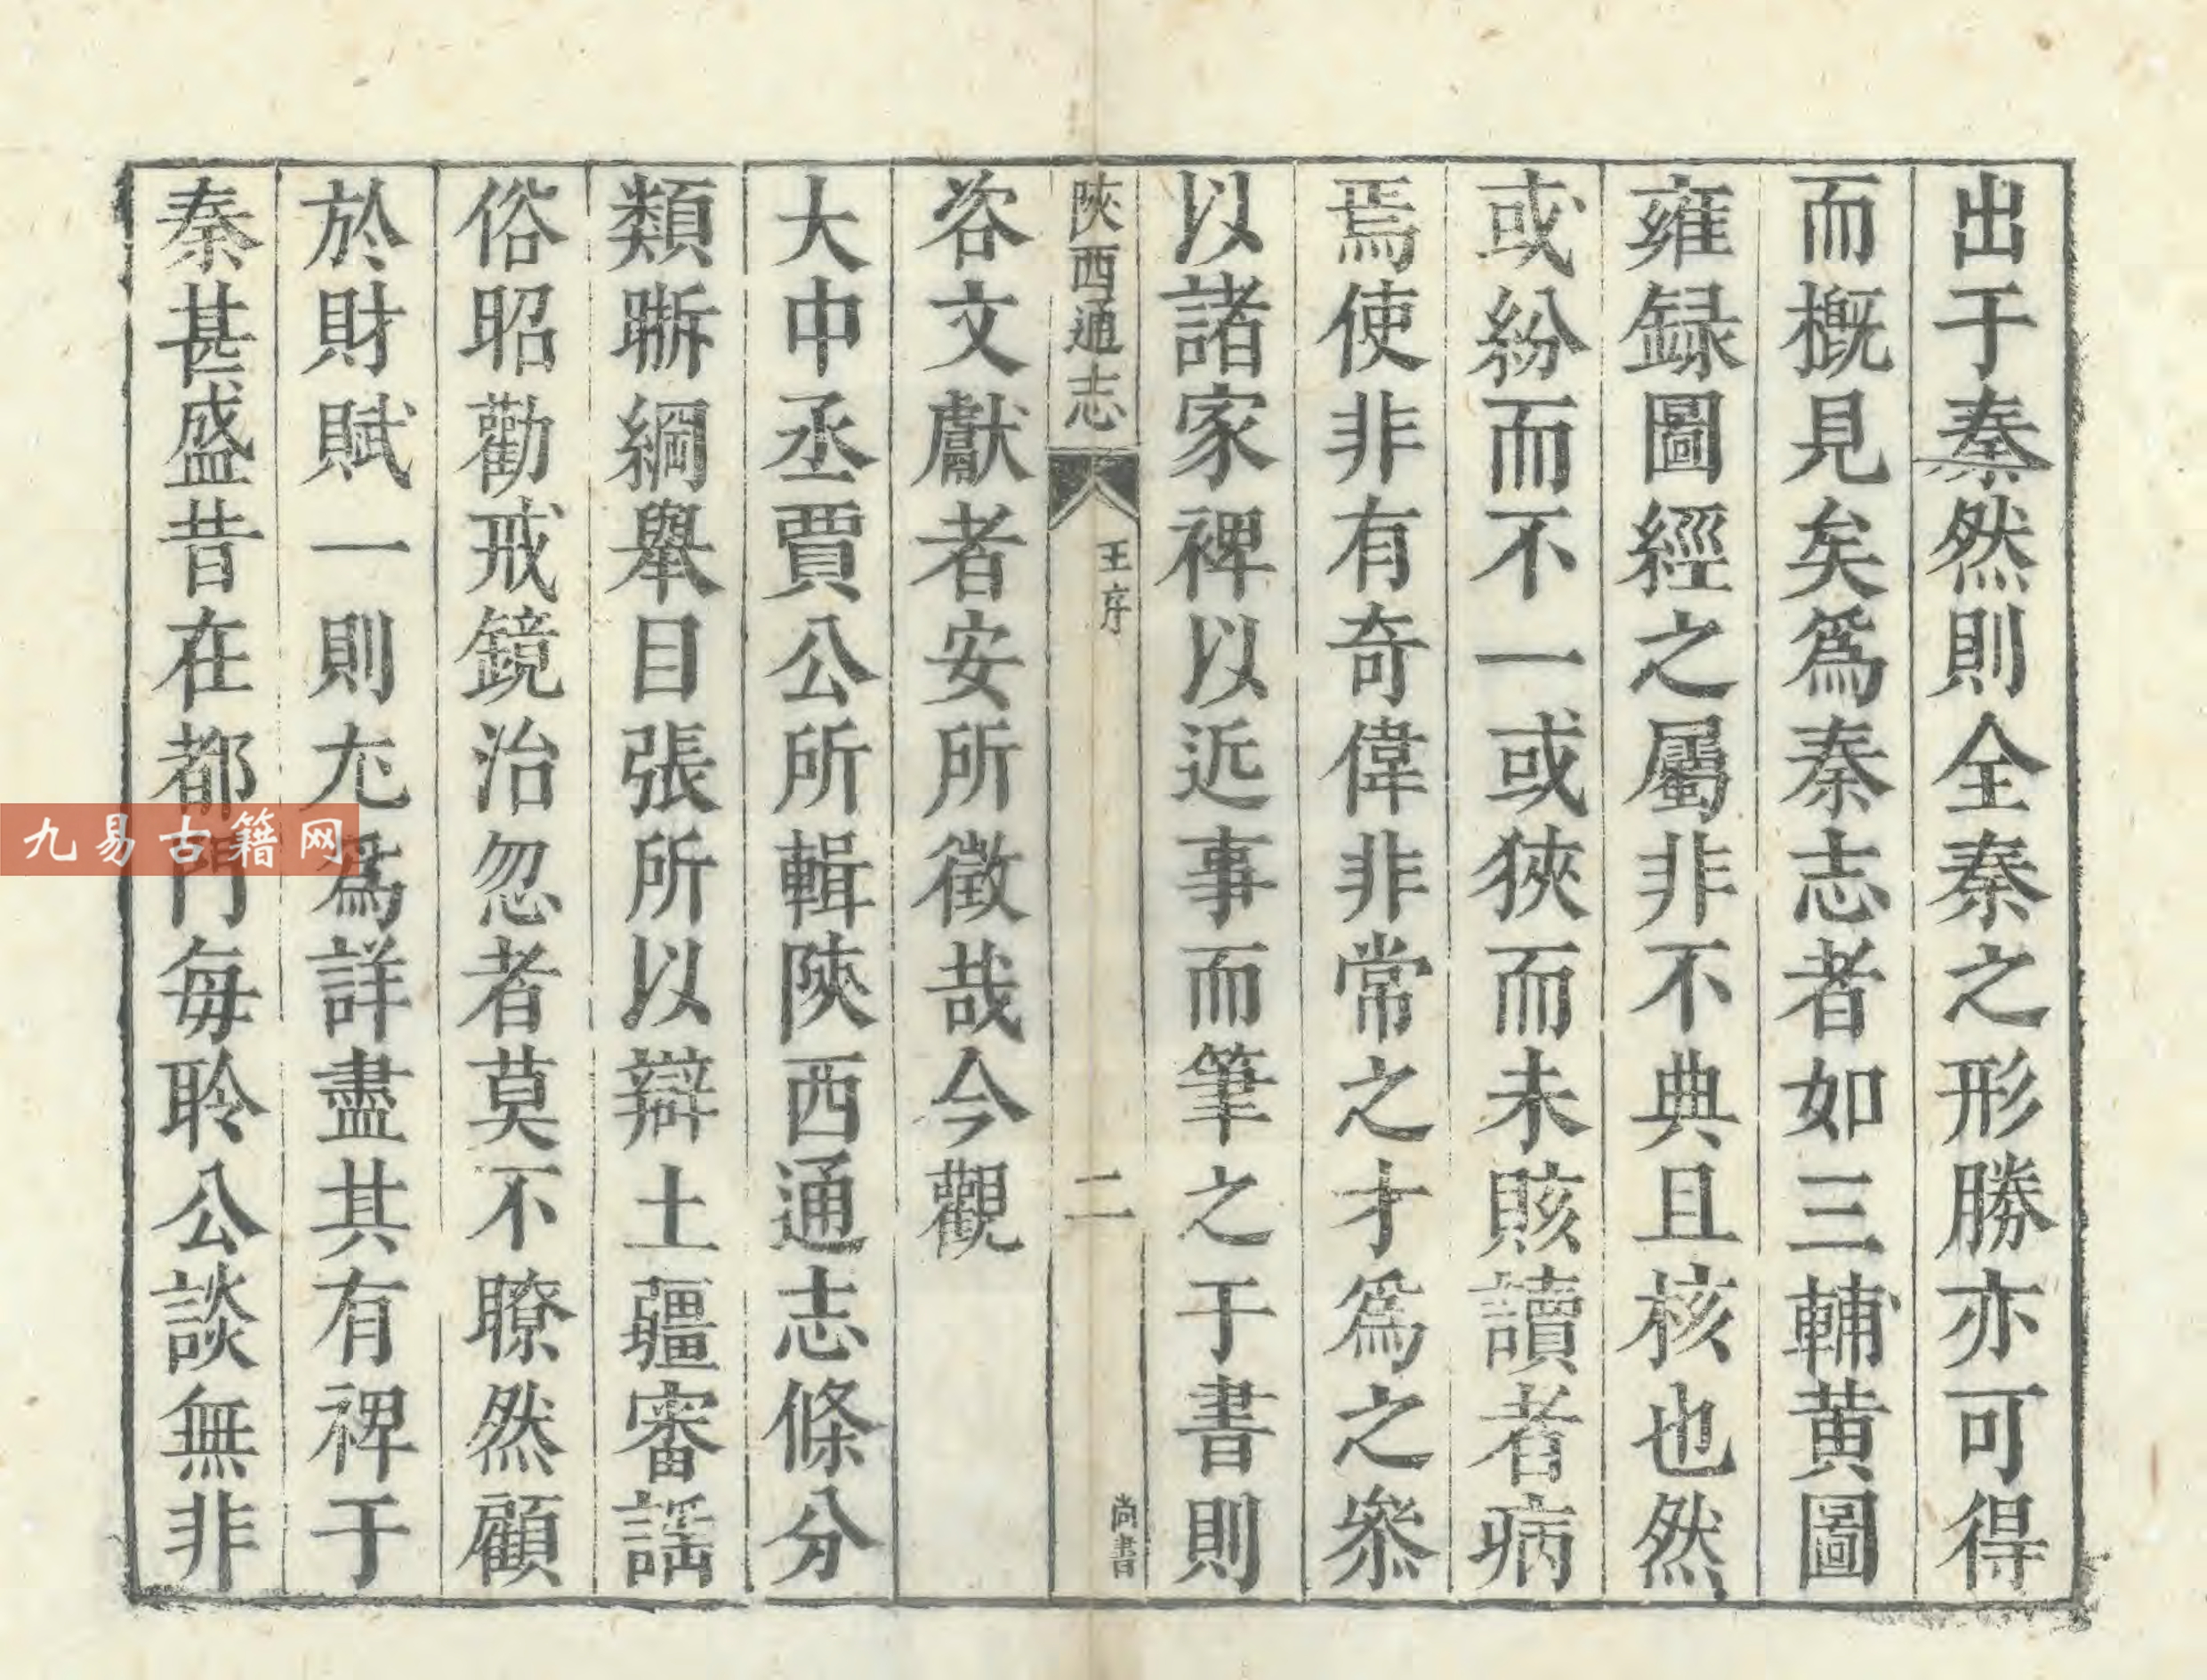 出于秦然則全秦之形勝亦可得
而概見矣爲秦志者如三輔黄圖
雍録圖經之屬非不典且核也然
或紛而不一或狹而未賅讀者病
焉使非有奇偉非常之才爲之叅
以諸家裨以近事而筆之于書則
陝西通志
王序
二
尚書
咨文獻者安所徵哉今觀
大中丞賈公所輯陝西通志條分
類晰綱舉目張所以辯土疆審謡
俗昭勸戒鏡治忽者莫不瞭然顧
於財賦一則尢爲詳盡其有裨于
秦甚盛昔在都門每聆公談無非
九易古籍网